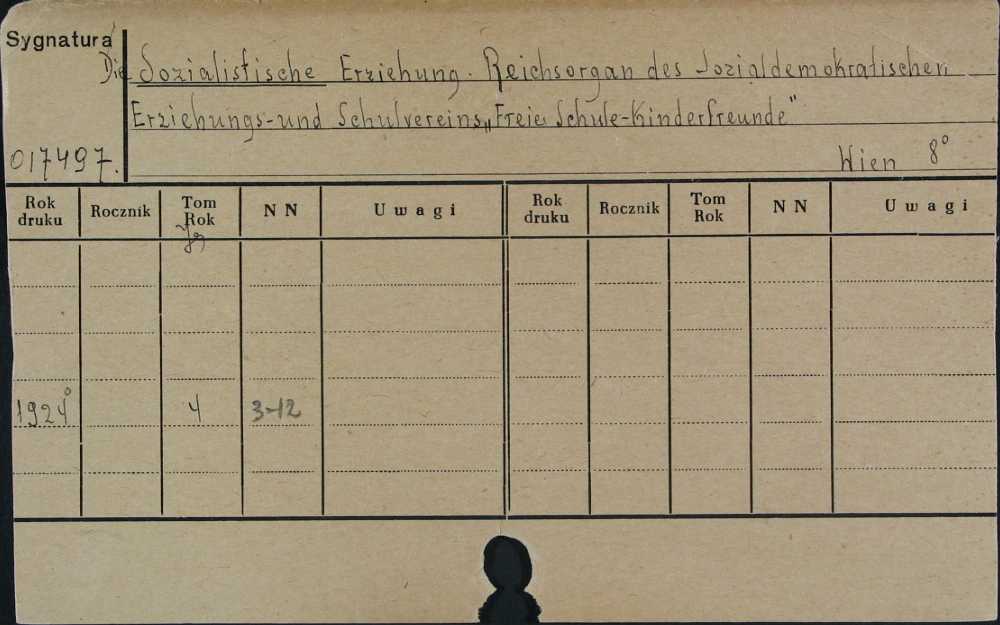 Sygnatura
Die Sozialistische Erziehung. Reichsorgan des Sozialdemokratischen
Erziehungs-und Schulvereins „Freie Schule-Kinderfreunde"
017497. Wien 8°
Rok druku Rocznik Tom Rok NN Uwagi Rok druku Rocznik Tom Rok NN Uwagi
Jg
1924° 4 3-12